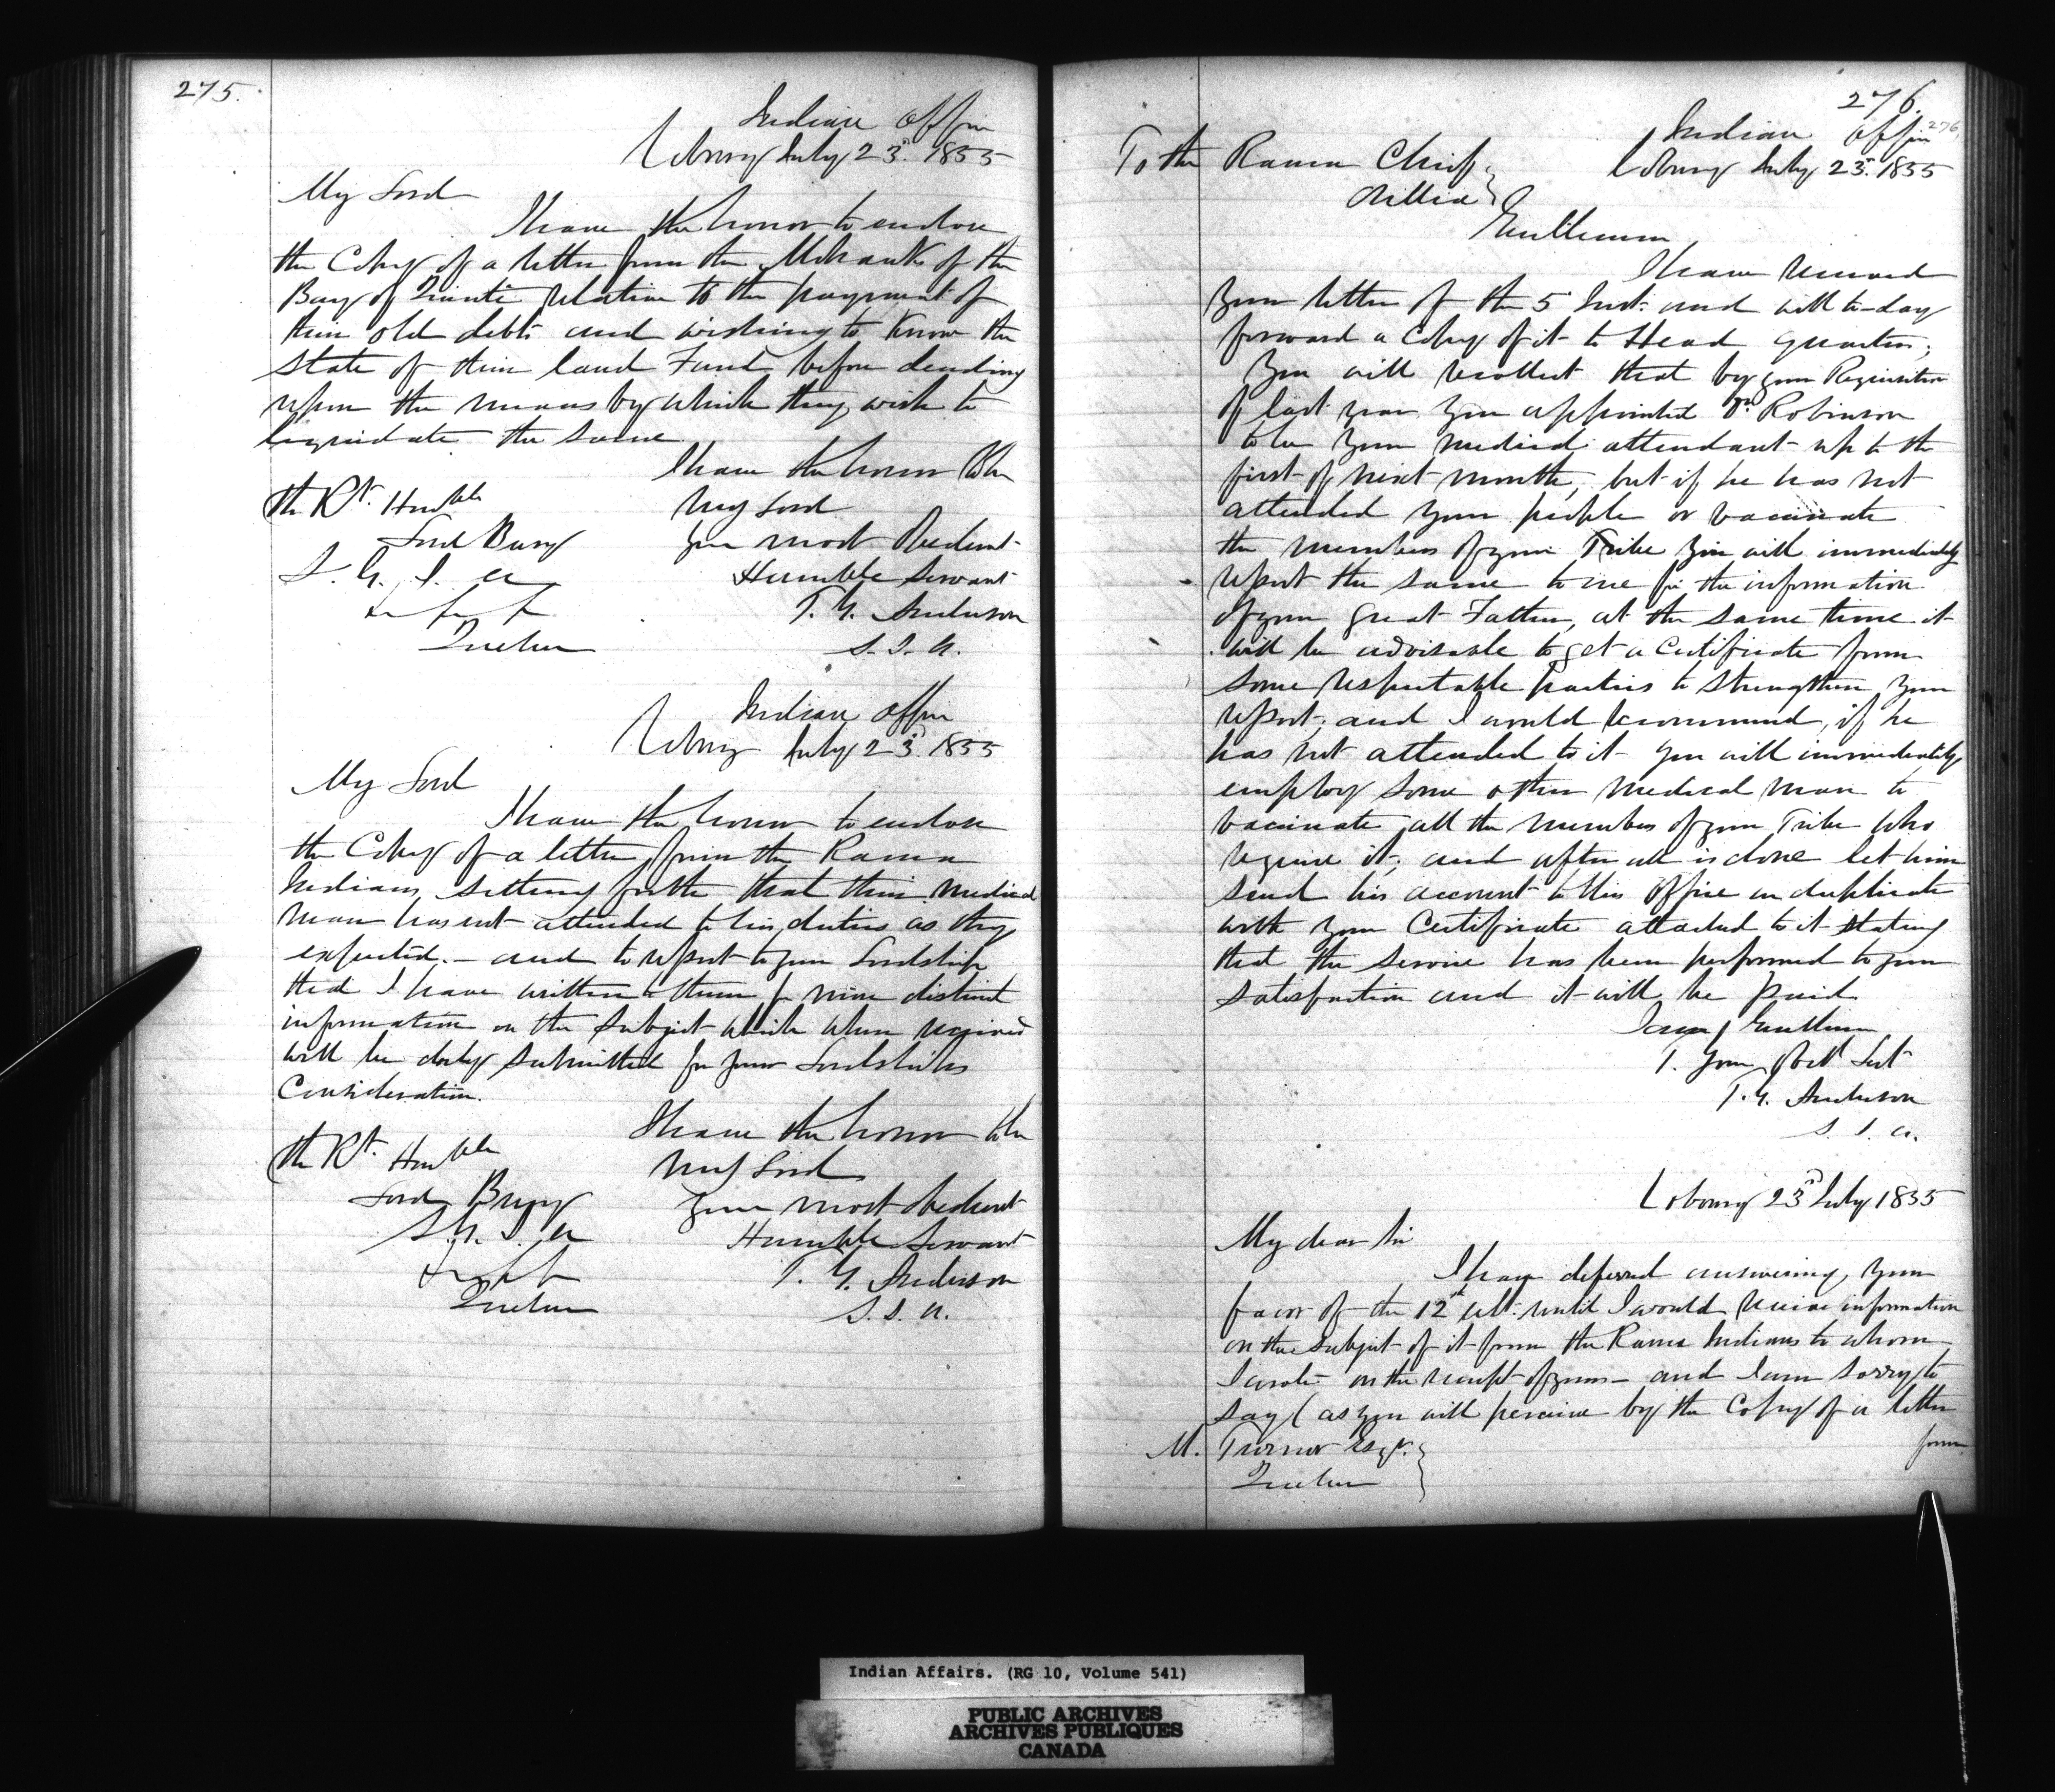 275.
Indian Office
Cobourg July 23rd. 1855
My Lord
I have the honor to enclose
the Copy of a letter from the Mohawks of the
Bay of Quinté relative to the payment of
their old debts and wishing to know the
state of their land Fund before deciding
upon the means by which they wish to
liquidate the same
I have the honor to be
My Lord
Your most Obedient
Humble Servant
T. G. Anderson
S. I. A.
The Rt. Honble
Lord Bury
S. G. I. A
Quebec
Indian Office
Cobourg July 23rd. 1855
My Lord
I have the honor to enclose
the Copy of a letter from the Rama
Indians, setting forth that their medical
man has not attended to his duties as they
expected. – and to report to your Lordship
that I have written to them for more distinct
information on the subject which when received
will be duly submitted for your Lordships
Consideration.
I have the honor to be
My Lord
Your most obedient
Humble Servant
T. G. Anderson
S. I. A.
The Rt. Honble
Lord Bury
S. G. I. A
Quebec
276.
276.
Indian Office
Cobourg July 23rd. 1855
To the Rama Chiefs
Orillia
Gentlemen,
I have received
your letter of the 5th Inst. and will to-day
forward a Copy of it to Head Quarters;
You will recollect that by your Requisition
of last year you appointed Dr. Robinson
to be your medical attendant up to the
first of next month, but if he has not
attended your people or vaccinate
the members of your Tribe you will immediately
report the same to me for the information
of your great Father, at the same time it
will be advisable to get a Certificate from
some respectable parties to strengthen your
report; and I would recommend, if he
has not attended to it you will immediately
employ some other medical man to
vaccinate all the members of your Tribe who
require it; and after all is done let him
send his account to this office in duplicate
with your Certificate attached to it stating
that the service has been performed to your
satisfaction and it will be paid
I am, Gentlemen
T. G. Anderson
S. I. A.
Cobourg 23rd July 1855
My dear Sir
I have deferred answering your
favor of the 12th ult. until I would receive information
on the subject of it from the Rama Indians to whom
I wrote on the receipt of yours – and I am sorry to
say (as you will perceive by the Copy of a letter
from
M. Turner Esqr.
Quebec
Indian Affairs. (RG 10, Volume 541)
PUBLIC ARCHIVES
ARCHIVES PUBLIQUES
CANADA